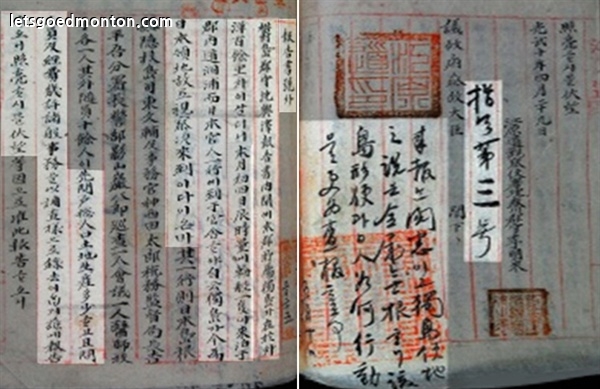 letsgoedmonton.com
報告書號外
鬱島郡守沈興澤報告書內開에本郡所屬獨島가在於外
洋百餘里外이살더니本月初四日辰時量에輪船一隻이來泊于
郡內道洞浦而日本官人一行이到于官舍ᄒᆞ야自云獨島가今爲
日本領地故로視察次來到이다이온바其一行則日本島根
縣隱岐島司東文輔及事務官神西田太郞稅務監督局長吉
田平吾分署長警部影山巖八郞巡査一人會議員一人醫師技
手各一人其外隨員十餘人이先問戶摠人口土地生産多少ᄒᆞ고且問
人員及經費幾許諸般事務를以調査樣으로錄去이ᄋᆞᆸ기玆以報告
ᄒᆞ오니照亮ᄒᆞ시믈伏望等因으로准此報告ᄒᆞ오니
照亮ᄒᆞ시믈伏望
光武十年四月二十九日
江原道觀察使署理春川郡守李明來
議政府參政大臣 閣下
指令第三號
來報는閱悉이고獨島領地
之說은全屬無根ᄒᆞ니該
島形便과日人如何行動
을更爲査報ᄒᆞᆯ事